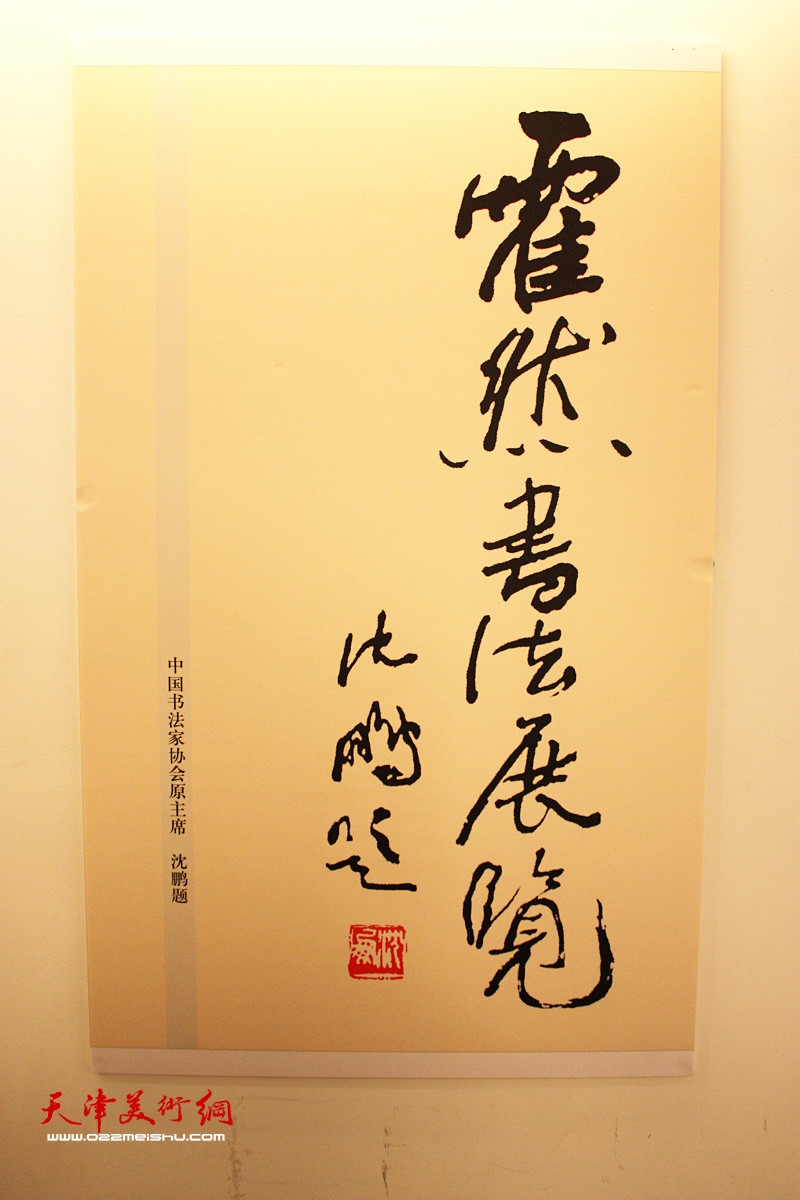 霍然書法展覽
沈鹏题
中国书法家协会原主席 沈鹏题
天津美術網
www.022meishu.com